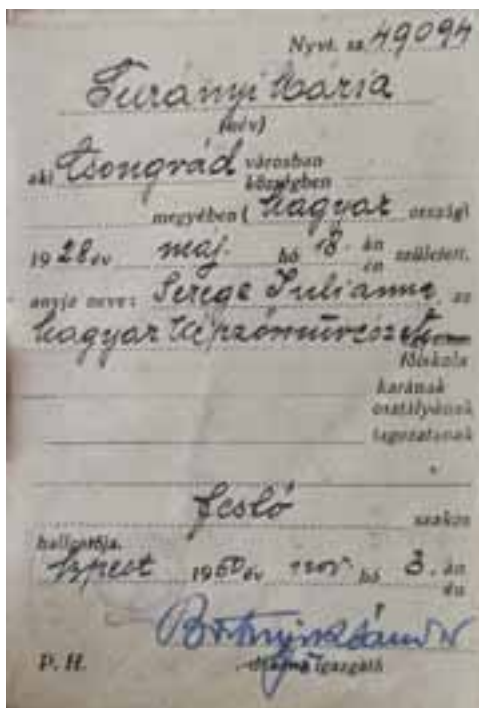 Nyvt. sz. 49094
Turányi Mária
(név)
aki Csongrád városban
községben
megyében ( Magyar ország)
1928 év maj. hó 18. án
én született,
anyja neve: Szege Julianna, az
Magyar Képzőművészeti
főiskola
karának
osztályának
tagozatának
festő szakos
hallgatója.
Bpest 1950 év nov. hó 3. án
én
Bortnyik Sándor
P. H. igazgató